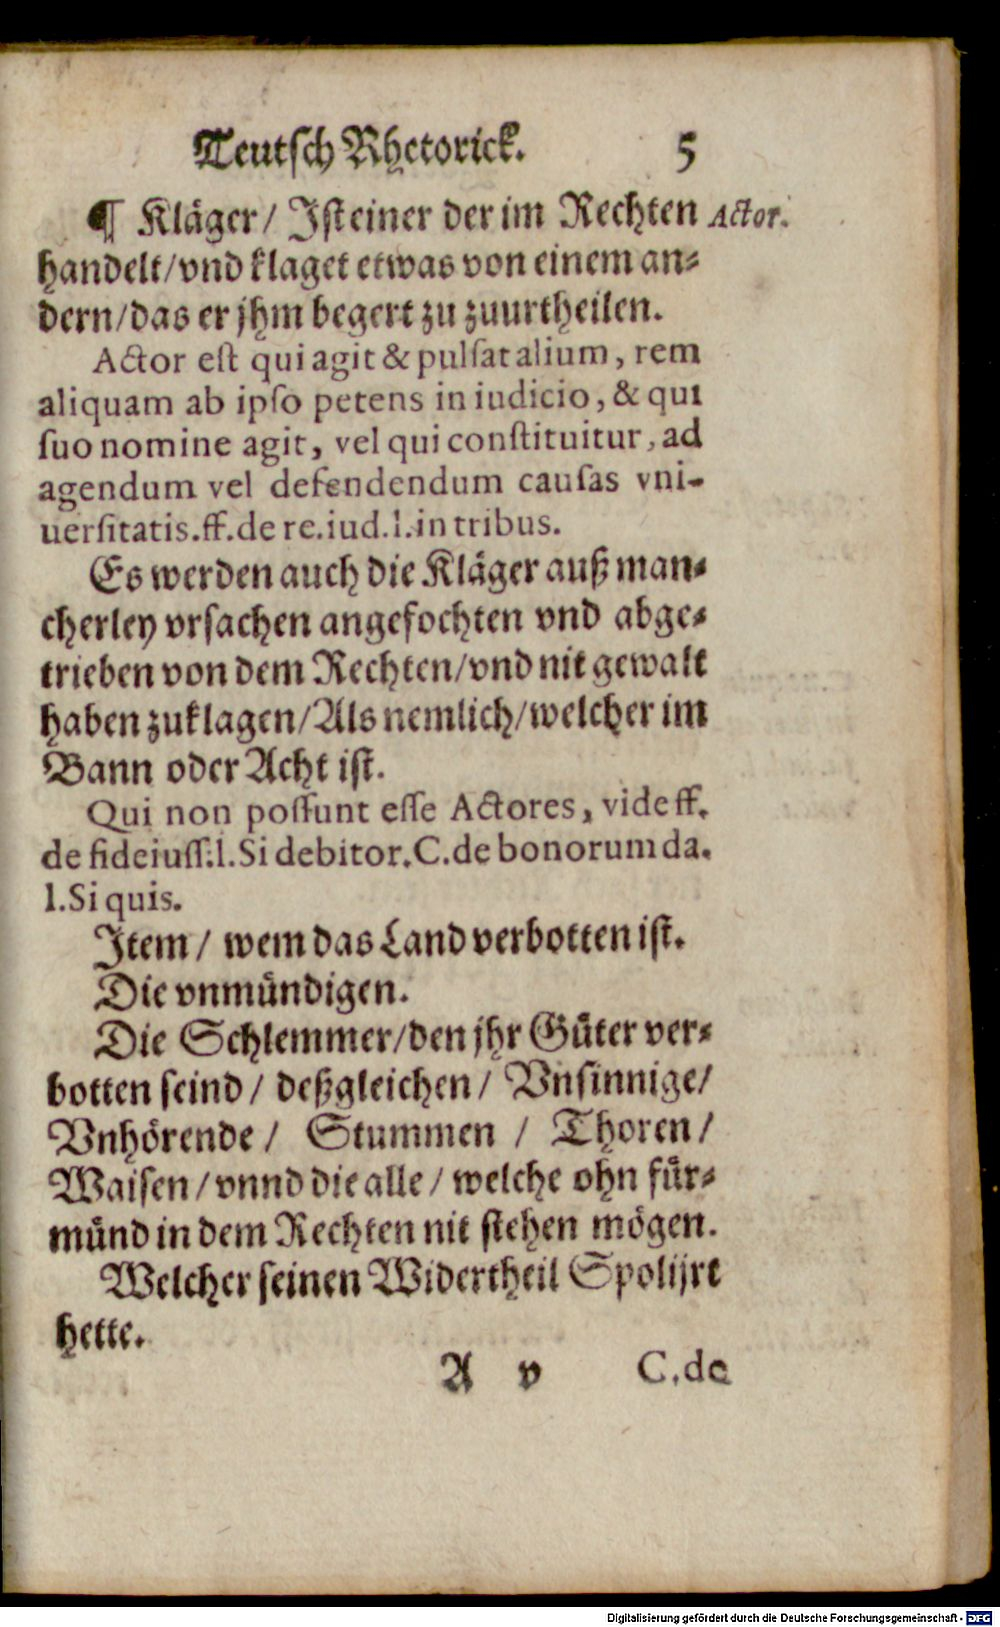 Teutsch Rhetorick. 5
¶ Kläger / Jst einer der im Rechten Actor.
handelt / vnd klaget etwas von einem an⸗
dern / das er jhm begert zu zuurtheilen.
Actor est qui agit & pulsat alium, rem
aliquam ab ipso petens in iudicio, & qui
suo nomine agit, vel qui constituitur, ad
agendum vel defendendum causas vni-
uersitatis. ff. de re. iud. l. in tribus.
Es werden auch die Kläger auß man⸗
cherley vrsachen angefochten vnd abge⸗
trieben von dem Rechten / vnd nit gewalt
haben zuklagen / Als nemlich / welcher im
Bann oder Acht ist.
Qui non possunt esse Actores, vide ff.
de fideiuss. l. Si debitor. C. de bonorum da.
l. Si quis.
Jtem / wem das Land verbotten ist.
Die vnmündigen.
Die Schlemmer / den jhr Güter ver⸗
botten seind / deßgleichen / Vnsinnige /
Vnhörende / Stummen / Thoren /
Waisen / vnnd die alle / welche ohn für⸗
münd in dem Rechten nit stehen mögen.
Welcher seinen Widertheil Spolijrt
hette.
A v C. de
Digitalisierung gefördert durch die Deutsche Forschungsgemeinschaft - DFG